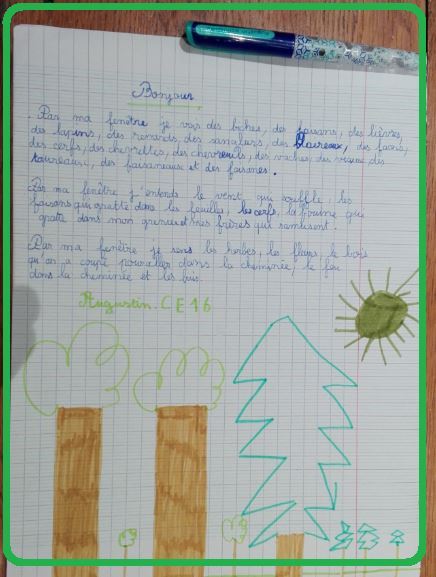 Bonjour
. Par ma fenêtre je vois des biches, des faisans, des lièvres,
des lapins, des renards, des sangliers, des blaireaux, des faons,
des cerfs, des chevrettes, des chevreuils, des vaches, des veaux des
taureaux, des faisaneaux et des faisanes.
Par ma fenêtre j'entends le vent qui souffle, les
faisans qui gratte dans les feuilles, les cerfs, la fouine qui
gratte dans mon grenier et mes frères qui s'amusent.
Par ma fenêtre je sens les herbes, les fleurs, le bois
qu'on a coupé pour aller dans la cheminée, le feu
dans la cheminée et les
Augustin. CE1 6